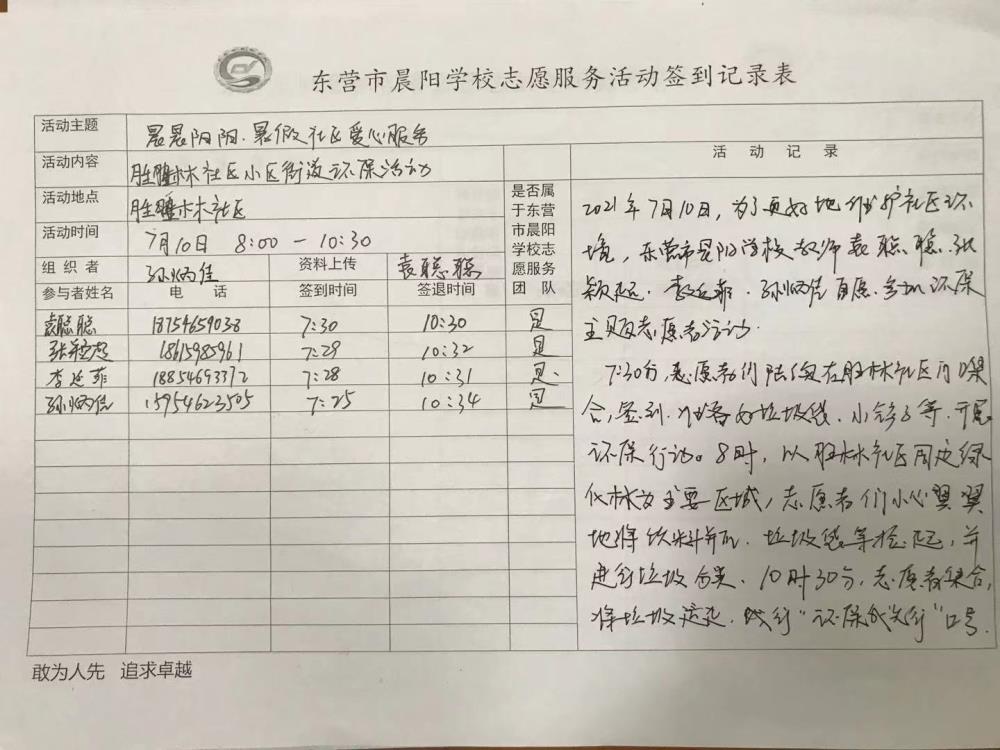 东营市晨阳学校志愿服务活动签到记录表
活动主题 晨晨阳阳·暑假社区爱心服务
活动内容 胜利林社区小区街道环保活动
活动地点 社区
活动时间 7月10日 8:00 — 10:30
组织者 孙炳佳 资料上传 袁聪聪
参与者姓名 电话 签到时间 签退时间
是否属
于东营
市晨阳
学校志
愿服务
团队
袁聪聪 18754659038 7:30 10:30 是
张颖超 18615985961 7:29 10:32 是
李延菲 18854693372 7:28 10:31 是
孙炳佳 15954623505 7:25 10:34 是
活动记录
2021年7月10日,为了更好地维护社区环
境,东营市晨阳学校教师袁聪聪、张
颖超、李延菲、孙炳佳自愿参加环保
主题志愿者活动.
7:30分,志愿者们陆续在胜林社区门口集
合,签到.准备好垃圾袋、小铲子等.开展
环保行动。8时,以胜林社区周边绿
化林为主要区域,志愿者们小心翼翼
地将饮料瓶、垃圾袋等捡起,并
进行垃圾分类、10时30分,志愿者集合,
将垃圾送走.践行“环保我先行”口号.
敢为人先 追求卓越